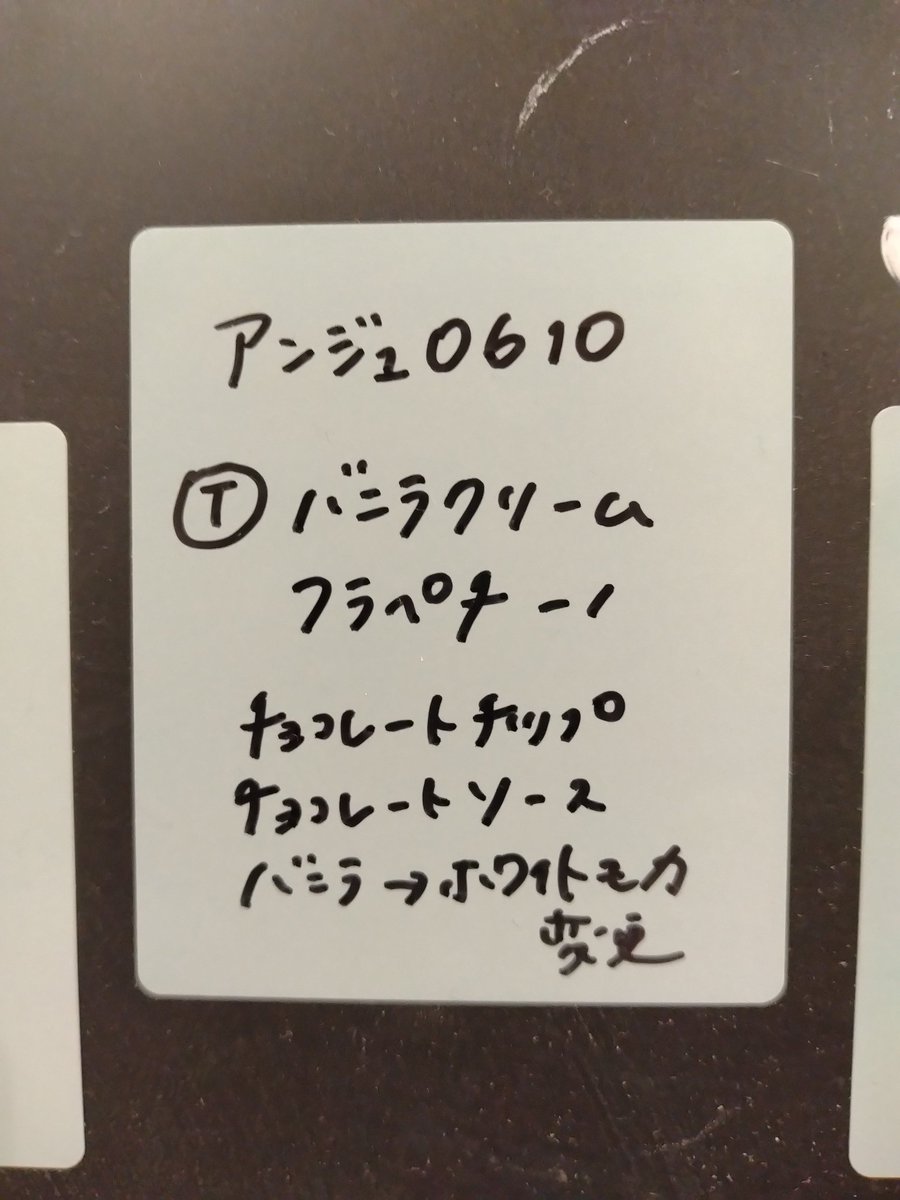 アンジュ0610
Ⓣ バニラクリーム
フラペチーノ
チョコレートチップ
チョコレートソース
バニラ→ホワイトモカ
変更